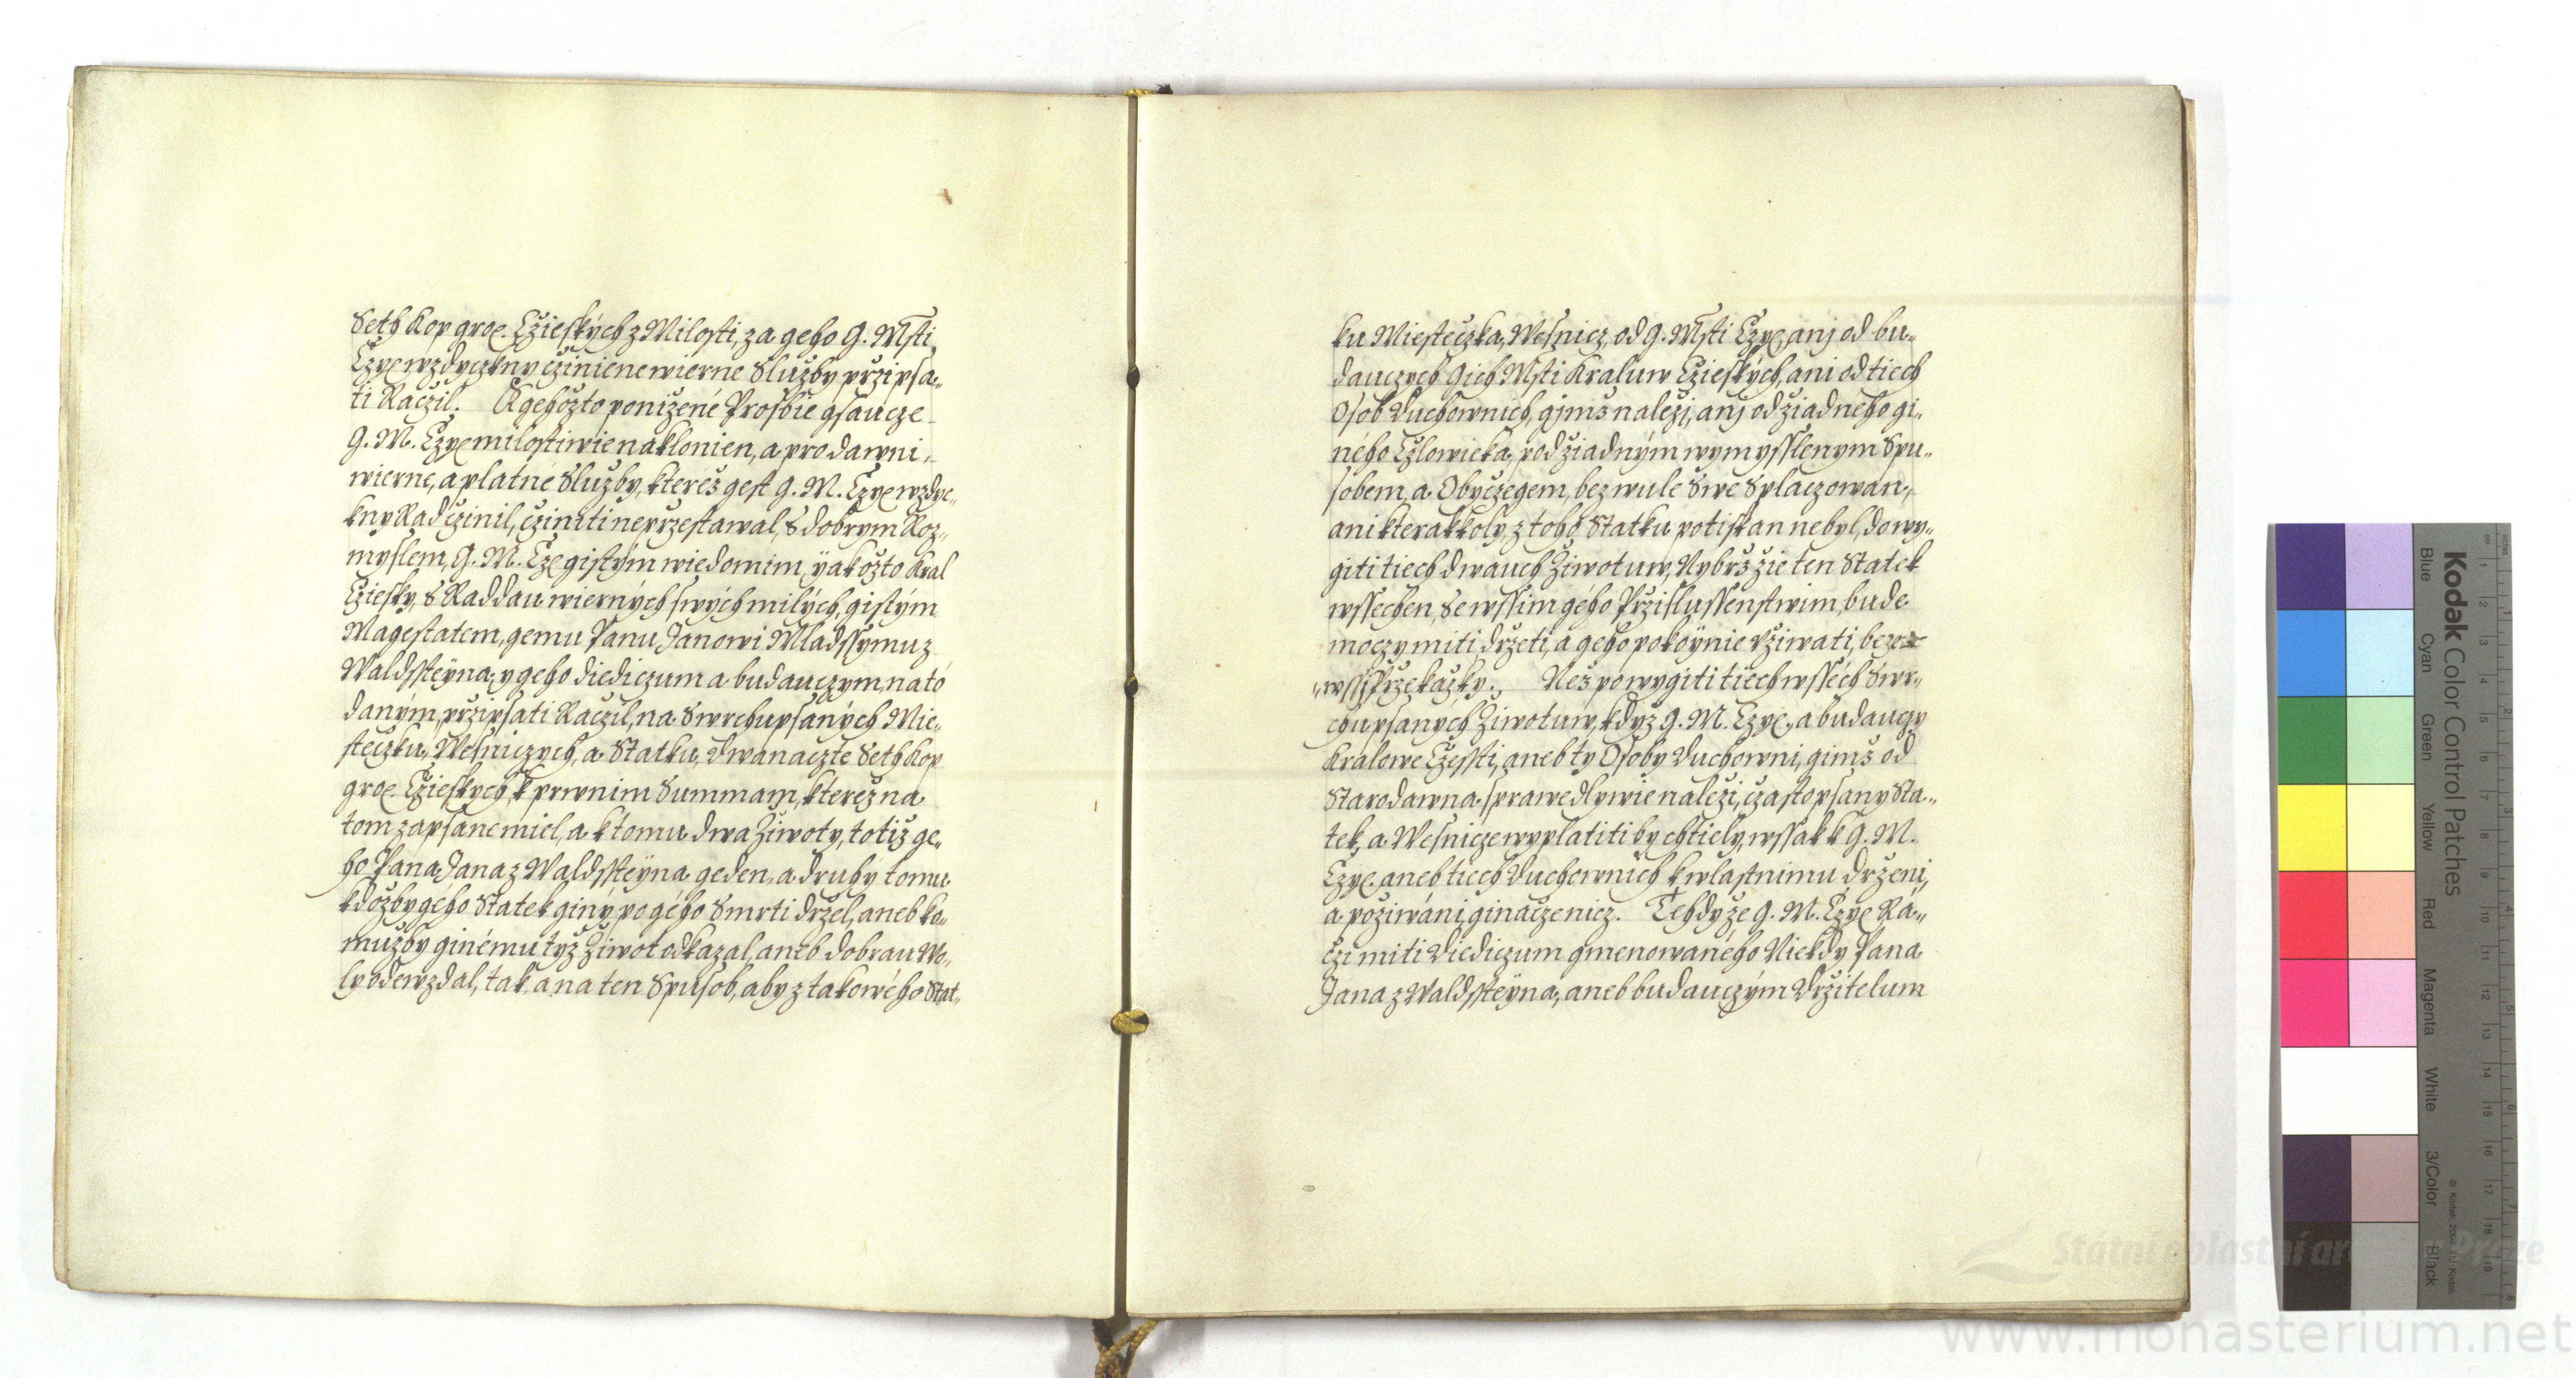 Seth Kop groe. Cžieských z Milosti, za geho G. Msti
Czye wzdyczkny cžiniene wierne Služby przipsa„
ti Raczil. K gehožto ponižené Prosbie gsaucze
G. M. Czye milostiwie naklonien, a pro dawni
wierne, a platné Služby, kteréž gest G. M. Czye wzdyc„
kny Rad czinil, cziniti neprzestawal, S dobrym Roz„
myslem, G. M. Cze gistým wiedomim, yakožto Kral
Cziesky, S Raddau wierných swých milých, gistým
Magestatem, gemu Panu Janowi Mladssýmu z
Waldssteyna, y geho diediczum a budauczym, na to
daným, przipsati Raczil, na Swrchupsaných Mie„
stečzku, Wesniczych, a Statku, Dwanaczte Seth Kop
groe. Cžieskych, k prwnim Summam, kterež na
tom zapsane miel, a k tomu dwa Žiwoty, totiž ge„
ho Pana Jana z Waldssteyna geden, a druhy tomu
kdožby gého Statek giný po gého Smrti držel, aneb ko„
mužby ginému tyž Žiwot odkazal, aneb dobrau Wo„
ly odewzdal, tak, a na ten Spusob, aby z takowého Stat„
ku Miesteczka, Wesnicz, od G. Msti Czye, anj od bu„
dauczych Gich Msti Kraluw Czieských, ani od tiech
Osob Duchownich, gjmž naleži, anj od žiadného gi„
ného Cžlowieka, pod žiadným wymysslenym Spu„
sobem, a Obyčzegem, bez wule Swe Splaczowan,
ani kterakkoly, z toho Statku potiskan nebyl, do wy„
giti tiech dwauch Žiwotuw, Nybrž žie ten Statek
wssechen, Se wssim gého Przislussenstwim, bude
moczy miti držeti, a geho pokoynie vžiwati, beze
„wssi Przekažky. Než po wygiti tiech wssech Swr„
chupsaných Žiwotuw, když G. M. Czye, a budauczy
Kralowe Czessti, aneb ty Osoby Duchowni, gimž od
Starodawna sprawedlywie naleži, cžastopsany Sta„
tek, a Wesnicze wyplatiti by chtiely, wssak k G. M.
Czye aneb tiech Duchownich k wlastnimu drženi,
a požiwáni, ginacze nicz. Tehdy že G. M. Czye Rá„
cži miti Diediczum gmenowaného Niekdy Pana
Jana z Waldssteyna, aneb budauczým Držitelum
Kodak Color Control Patches
Blue Cyan Green Yellow Red Magenta White 3/Color Black
www.monasterium.net